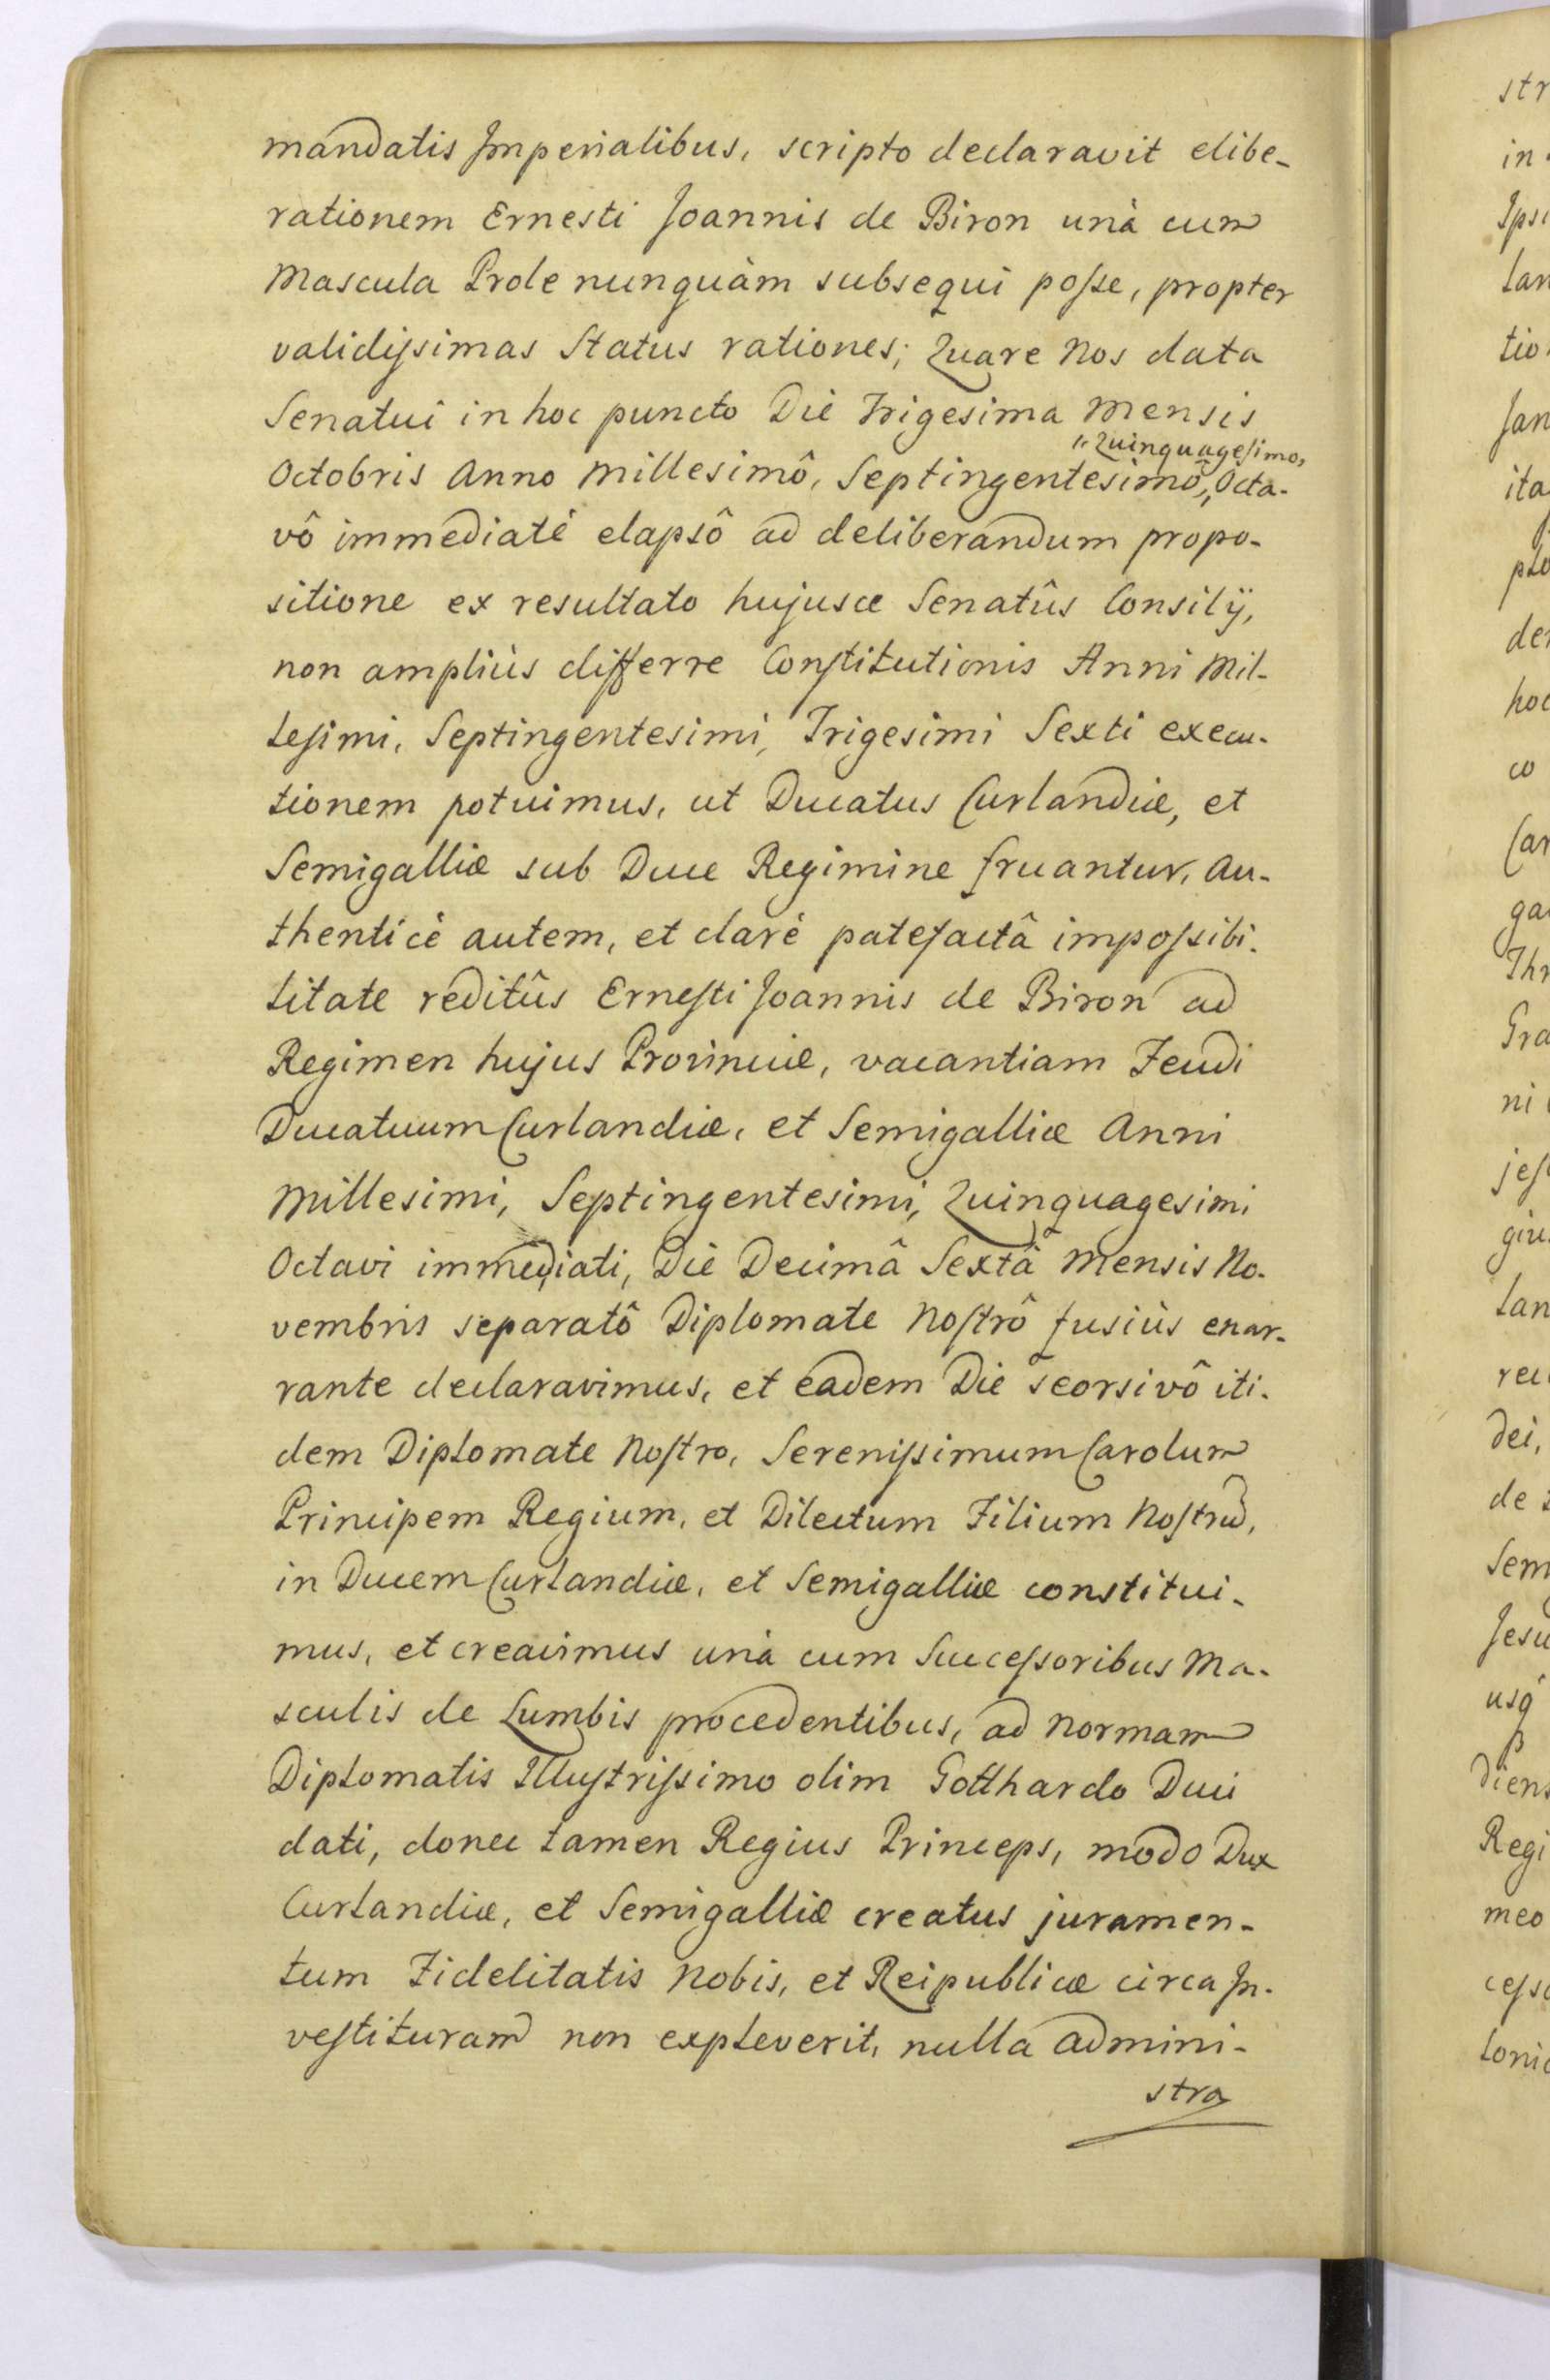 mandatis Imperialibus, scripto declaravit elibe-
rationem Ernesti Joannis de Biron unà cum
Mascula Prole nunquàm subsequi poſse, propter
validiſsimas Status rationes; Quare Nos data
Senatui in hoc puncto Die Trigesima Mensis
"Quinquageſimo,
Octobris Anno Millesimô, Septingentesimô,, Octa-
vô immediatè elapsô ad deliberandum propo-
sitione ex resultato hujusce Senatûs Consilÿ,
non ampliùs differre Conſtitutionis Anni Mil-
leſimi, Septingentesimi, Trigesimi Sexti execu-
tionem potuimus, ut Ducatus Curlandiæ, et
Semigalliæ sub Duce Regimine fruantur, Au-
thenticè autem, et clarè patefactâ impoſsibi-
litate reditûs Erneſti Joannis de Biron ad
Regimen hujus Provinciæ, vacantiam Feudi
Ducatuum Curlandiæ, et Semigalliæ Anni
Millesimi, Septingentesimi, Quinquagesimi
Octavi immediati, Die Decimâ Sextâ Mensis No-
vembris separatô Diplomate Noſtrô fusiùs enar-
rante declaravimus, et eadem Die seorsivô iti-
dem Diplomate Noſtro, Sereniſsimum Carolum
Principem Regium, et Dilectum Filium Noſtrũ,
in Ducem Curlandiæ, et Semigalliæ constitui-
mus, et creavimus unà cum Succeſsoribus Ma-
sculis de Lumbis procedentibus, ad normam
Diplomatis Illuſtriſsimo olim Gotthardo Duci
dati, donec tamen Regius Princeps, modo Dux
Curlandiæ, et Semigalliæ creatus juramen-
tum Fidelitatis Nobis, et Reipublicæ circa In-
veſtituram non expleverit, nulla admini-
stra